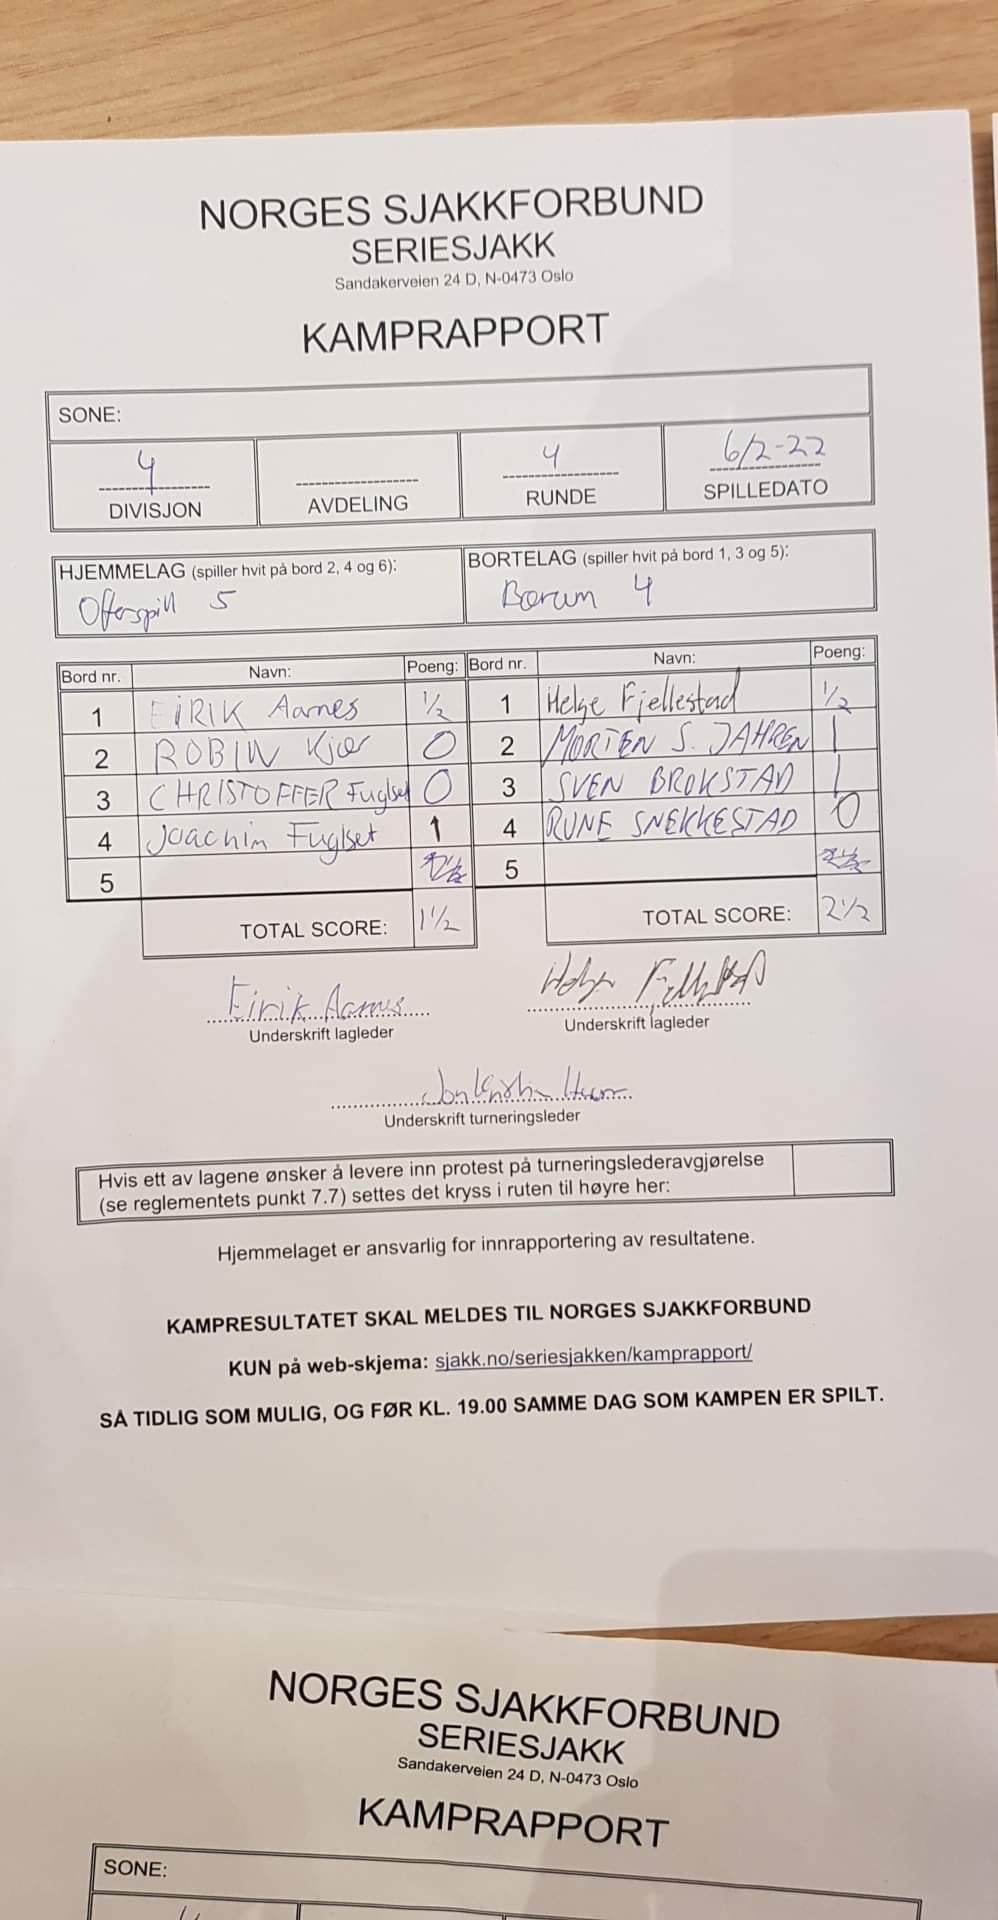 NORGES SJAKKFORBUND
SERIESJAKK
Sandakerveien 24 D, N-0473 Oslo
KAMPRAPPORT
SONE:
4 4 6/2-22
DIVISJON AVDELING RUNDE SPILLEDATO
HJEMMELAG (spiller hvit på bord 2, 4 og 6): BORTELAG (spiller hvit på bord 1, 3 og 5):
Offerspill 5 Bærum 4
Bord nr. Navn: Poeng: Bord nr. Navn: Poeng:
1 EIRIK Aarnes 1/2 1 Helge Fjellestad 1/2
2 ROBIN Kjær 0 2 MORTEN S. JAHREN 1
3 CHRISTOFFER Fuglset 0 3 SVEN BROKSTAD 1
4 Joachim Fuglset 1 4 RUNE SNEKKESTAD 0
5 5
TOTAL SCORE: 1 1/2 TOTAL SCORE: 2 1/2
Eirik Aarnes Helge Fjellestad
Underskrift lagleder Underskrift lagleder
Underskrift turneringsleder
Hvis ett av lagene ønsker å levere inn protest på turneringslederavgjørelse
(se reglementets punkt 7.7) settes det kryss i ruten til høyre her:
Hjemmelaget er ansvarlig for innrapportering av resultatene.
KAMPRESULTATET SKAL MELDES TIL NORGES SJAKKFORBUND
KUN på web-skjema: sjakk.no/seriesjakken/kamprapport/
SÅ TIDLIG SOM MULIG, OG FØR KL. 19.00 SAMME DAG SOM KAMPEN ER SPILT.
NORGES SJAKKFORBUND
SERIESJAKK
Sandakerveien 24 D, N-0473 Oslo
KAMPRAPPORT
SONE: